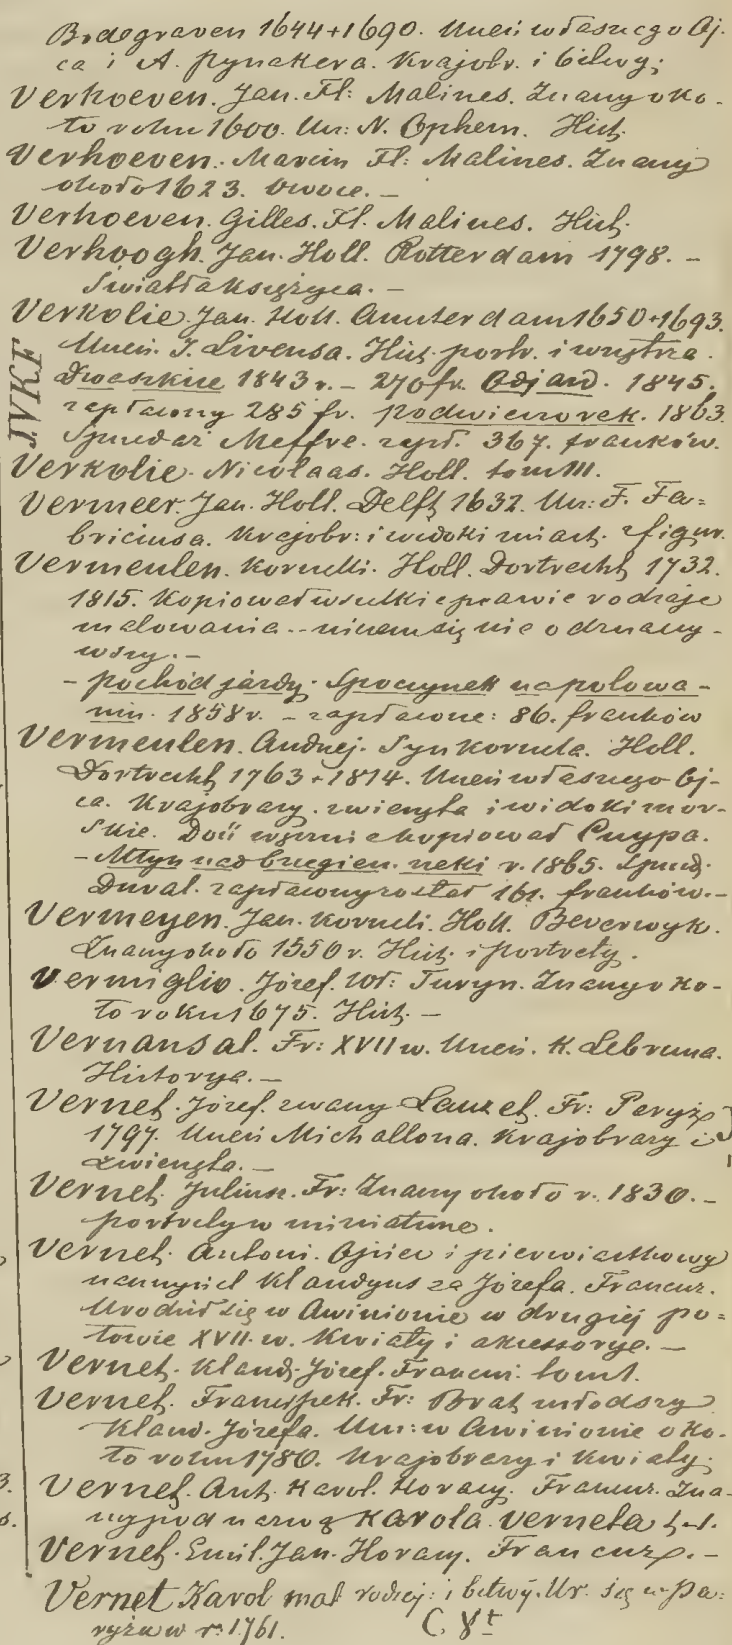 Bodegraven 1644+1690. Uczeń własnego Oj-
ca i A. Pynakera. Krajobr. i bitwy;
Verhoeven. Jan. Fl: Malines. Znany oko-
ło roku 1600. Ucz: N. Ophem. Hist.
Verhoeven. Marcin Fl: Malines. Znany
około 1623. Owoce. –
Verhoeven. Gilles. Fl. Malines. Hist.
Verhoogh. Jan. Holl. Rotterdam 1798. –
Światła księżyca. –
Verkolie. Jan. Holl. Amsterdam 1650+1693.
J.VKF
Uczeń. J. Livensa. Hist. portr. i wnętrza.
1843 r. – 270 fr. Odjazd. 1845.
zapłacony 285 fr. podwieczorek. 1863
Sprzedaż Meffre. zapł. 367. franków.
Verkolie. Nicolaas. Holl. tom III.
Vermeer. Jan. Holl. Delft 1632. Ucz: F. Fa=
briciusa. Krajobr: i widoki miast. z figur.
Vermeulen. Kornelli. Holl. Dortrecht 1732.
1815. Kopiował wszelkie prawie rodzaje
malowania – niczem się nie odznaczy-
wszy. –
– pochód jazdy. Spoczynek na polowa-
niu. 1858 r. – zapłacone: 86. franków
Vermeulen. Andrzej. Syn Kornela. Holl.
Dortrecht 1763+1814. Uczeń własnego Oj-
ca. Krajobrazy. zwierzęta i widoki mor-
skie. Dość wiernie kopiował Cuypa.
– Młyn nad brzegiem rzeki r. 1865. Sprzed.
Duval. zapłacony został 161. franków. –
Vermeyen. Jan. Korneli. Holl. Beverwyk.
Znany około 1550 r. Hist. i portrety.
Vermiglio. Józef. Wł: Turyn. Znany oko-
ło roku 1675. Hist. –
Vernansal. Fr: XVII w. Uczeń. K. Lebruna.
Historya. –
Vernet. Józef. zwany Lauzet. Fr: Paryż
1797. Uczeń Michallona. Krajobrazy i
zwierzęta. –
Vernet. Juliusz. Fr: Znany około r. 1830. –
portrety w miniaturze.
Vernet. Antoni. Ojciec i pierwiastkowy
nauczyciel Klaudyusza Józefa. Francuz.
Urodził się w Awinionie w drugiej po=
łowie XVII. w. Kwiaty i akcessorye. –
Vernet. Klaud. Józef. Francuz. tom I.
Vernet. Franciszek. Fr: Brat młodszy
Klaud. Józefa. Um: w Awinionie oko-
ło roku 1780. Krajobrazy i kwiaty.
Vernet. Ant. Karol. Horacy. Francuz. Zna-
ny pod nazwą Karola Verneta t. 1.
Vernet. Emil. Jan. Horacy. Francuz. –
Vernet Karol mal. rodzaj: i bitwy. Ur. się w Pa:
ryżu w r. 1761.